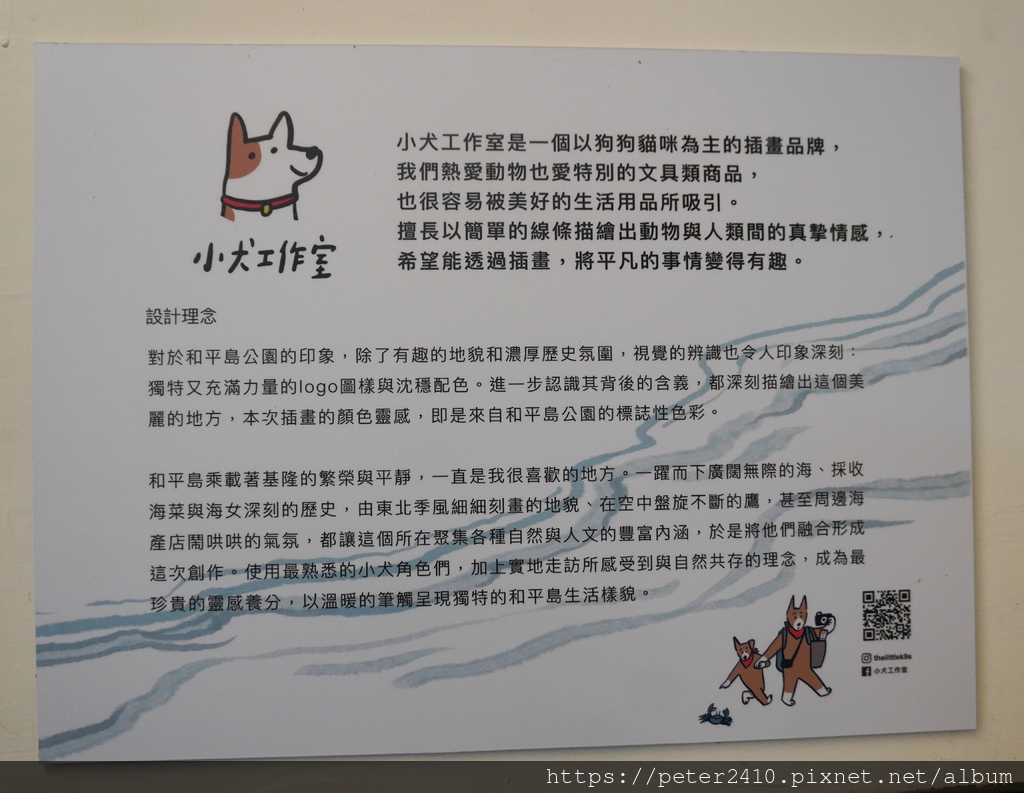 小犬工作室是一個以狗狗貓咪為主的插畫品牌，
我們熱愛動物也愛特別的文具類商品，
也很容易被美好的生活用品所吸引。
擅長以簡單的線條描繪出動物與人類間的真摯情感，
希望能透過插畫，將平凡的事情變得有趣。
小犬工作室
設計理念
對於和平島公園的印象，除了有趣的地貌和濃厚歷史氛圍，視覺的辨識也令人印象深刻：
獨特又充滿力量的logo圖樣與沈穩配色。進一步認識其背後的含義，都深刻描繪出這個美
麗的地方，本次插畫的顏色靈感，即是來自和平島公園的標誌性色彩。
和平島乘載著基隆的繁榮與平靜，一直是我很喜歡的地方。一躍而下廣闊無際的海、採收
海菜與海女深刻的歷史，由東北季風細細刻畫的地貌、在空中盤旋不斷的鷹，甚至周邊海
產店鬧哄哄的氣氛，都讓這個所在聚集各種自然與人文的豐富內涵，於是將他們融合形成
這次創作。使用最熟悉的小犬角色們，加上實地走訪所感受到與自然共存的理念，成為最
珍貴的靈感養分，以溫暖的筆觸呈現獨特的和平島生活樣貌。
thelittlek9s
小犬工作室
https://peter2410.pixnet.net/album